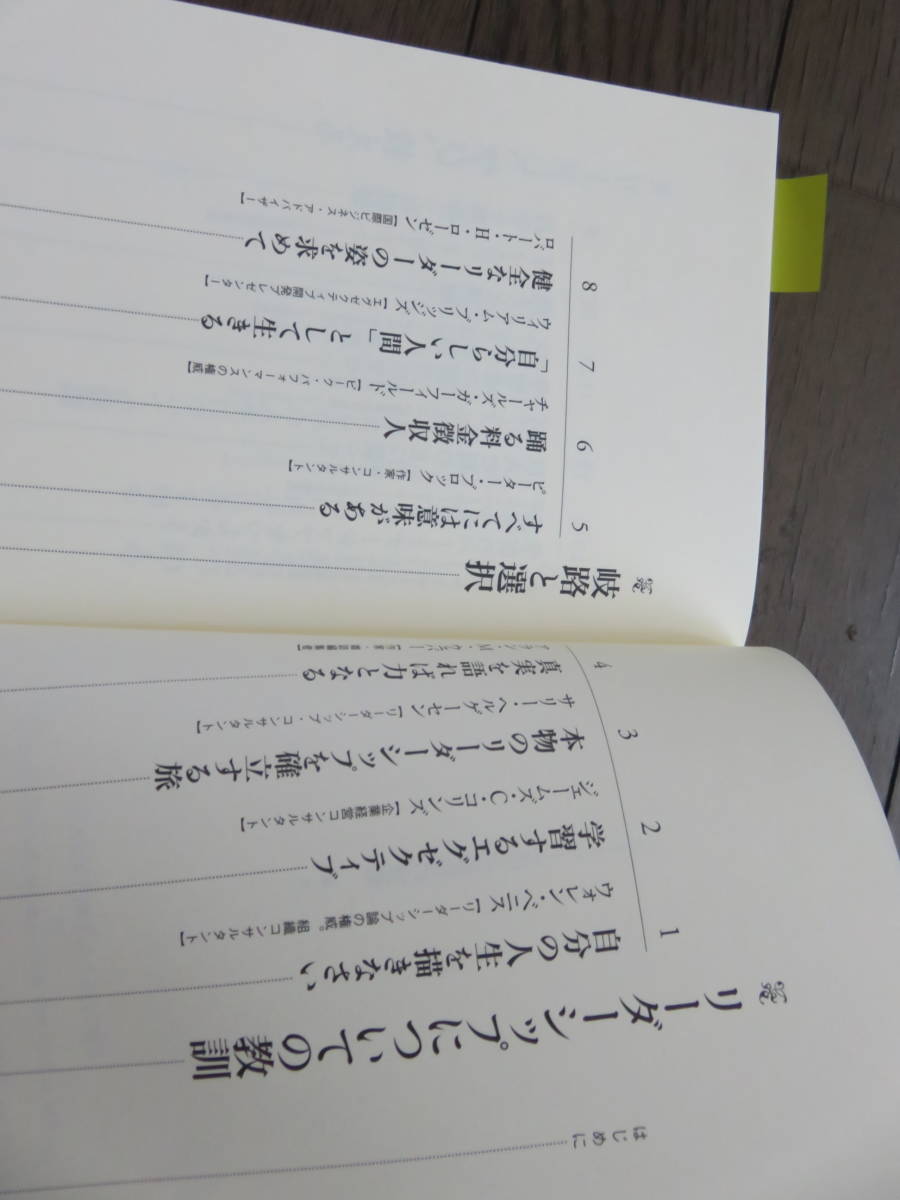 はじめに
リーダーシップについての教訓
1
自分の人生を描きなさい
ウォレン・ベニス【リーダーシップ論の権威。組織コンサルタント】
2
学習するエグゼクティブ
ジェームズ・C・コリンズ【企業経営コンサルタント】
3
本物のリーダーシップを確立する旅
サリー・ヘルゲーセン【リーダーシップ・コンサルタント】
4
真実を語れば力となる
岐路と選択
5
すべてには意味がある
ピーター・ブロック【作家・コンサルタント】
6
踊る料金徴収人
チャールズ・ガーフィールド【ピーク・パフォーマンスの権威】
7
「自分らしい人間」として生きる
ウィリアム・ブリッジズ【エグゼクティブ開発プレゼンター】
8
健全なリーダーの姿を求めて
ロバート・H・ローゼン【国際ビジネス・アドバイザー】